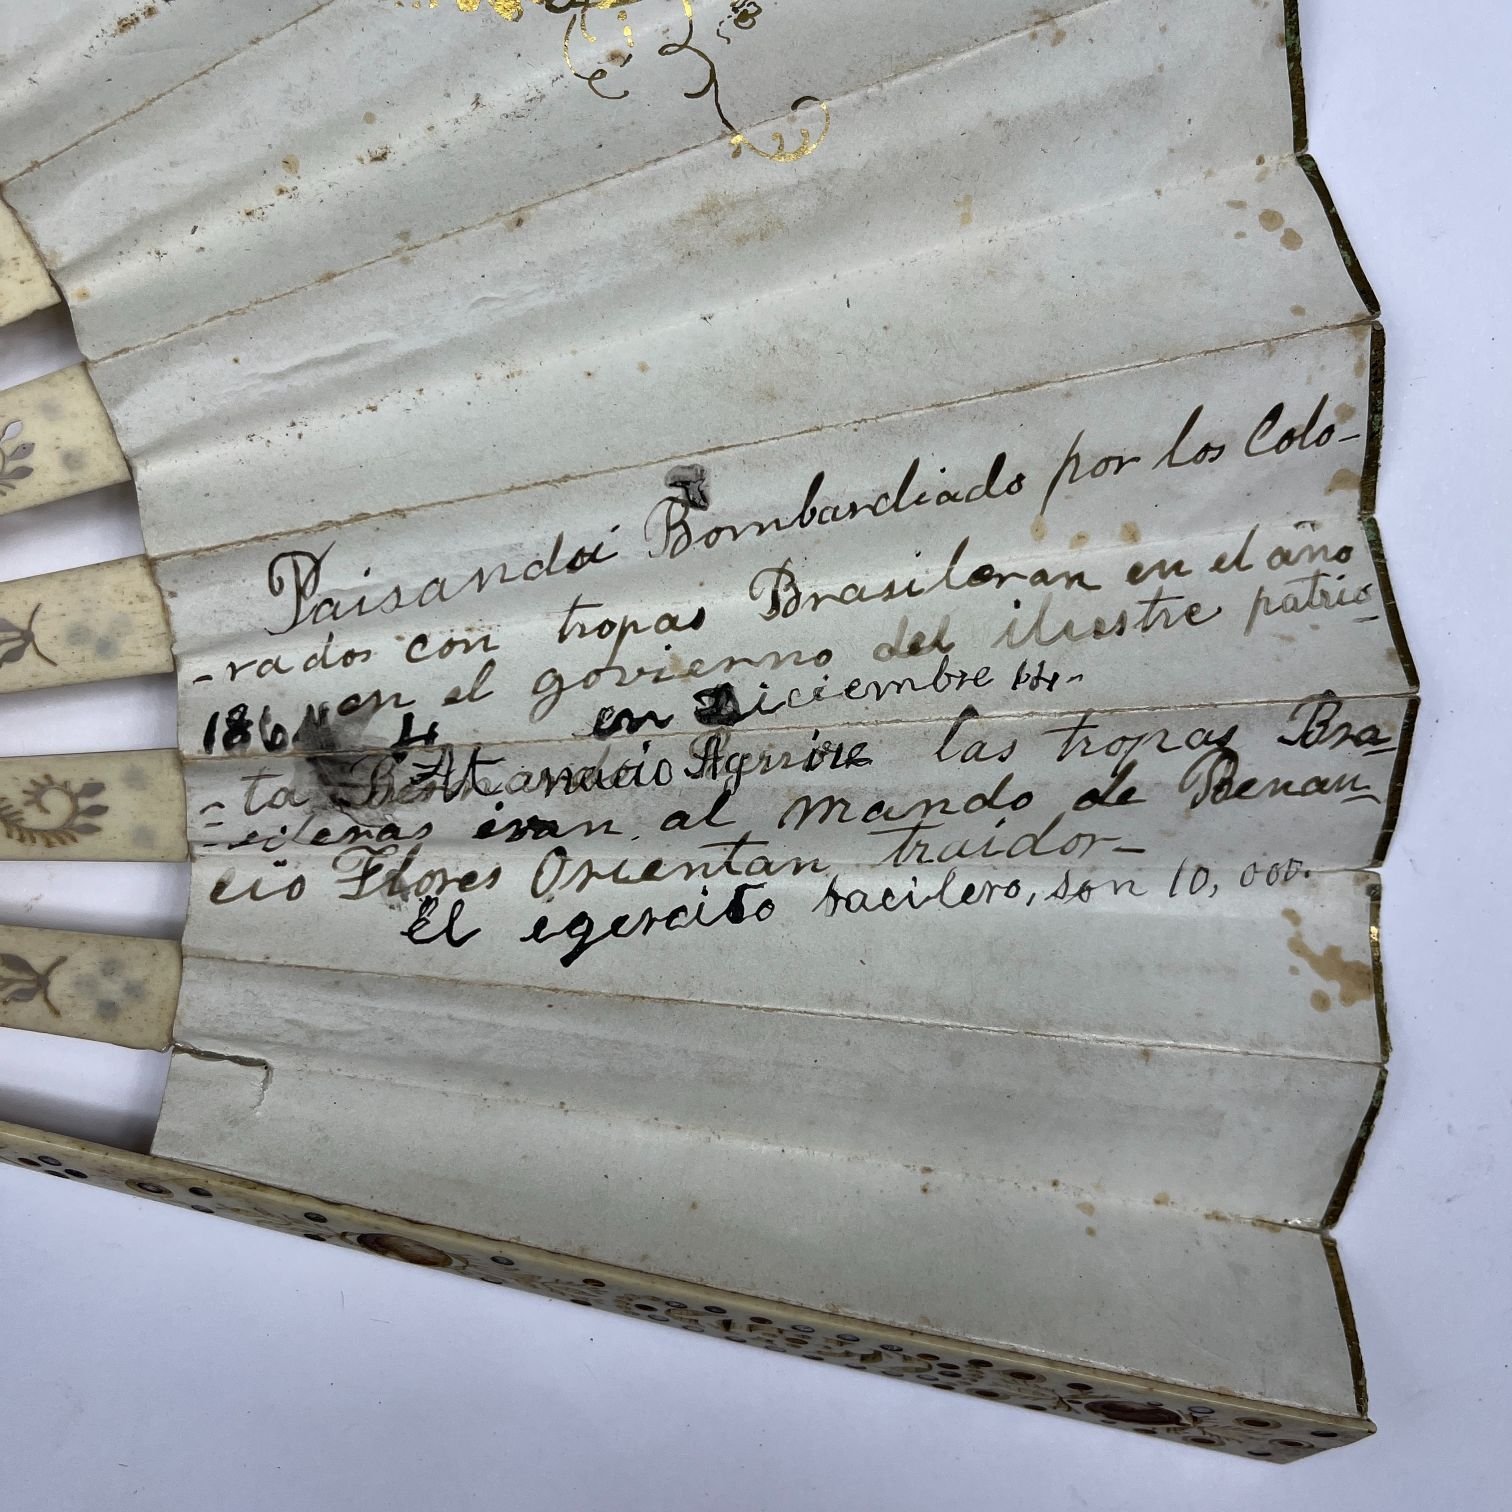 Paisandú Bombardiado por los Colo-
-rados con tropas Brasileran en el año
1864 en el govierno del ilustre patrio-
4 en Diciembre
-ta Atanacio Agirre las tropas Bra-
=cileras eran al mando de Benan-
cio Flores Orientan traidor-
El egercito racilero, son 10,000.